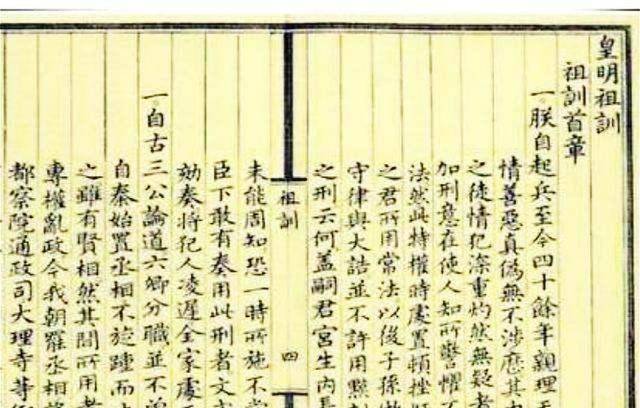 皇明祖訓
祖訓首章
一朕自起兵至今四十餘年親理
情善惡真偽無不涉歷其
之徒情犯深重灼然無疑者
加刑意在使人知所警懼不
法然此特權時處置頓挫
之君所用常法以後子孫做
守律與大誥並不許用黥刺
之刑云何蓋嗣君宮生內長
祖訓
四
未能周知恐一時所施不當
臣下敢有奏用此刑者文
劾奏將犯人凌遲全家處
一自古三公論道六卿分職並不
自秦始置丞相不旋踵而
之雖有賢相然其間所用者
專權亂政今我朝罷丞相
都察院通政司大理寺等